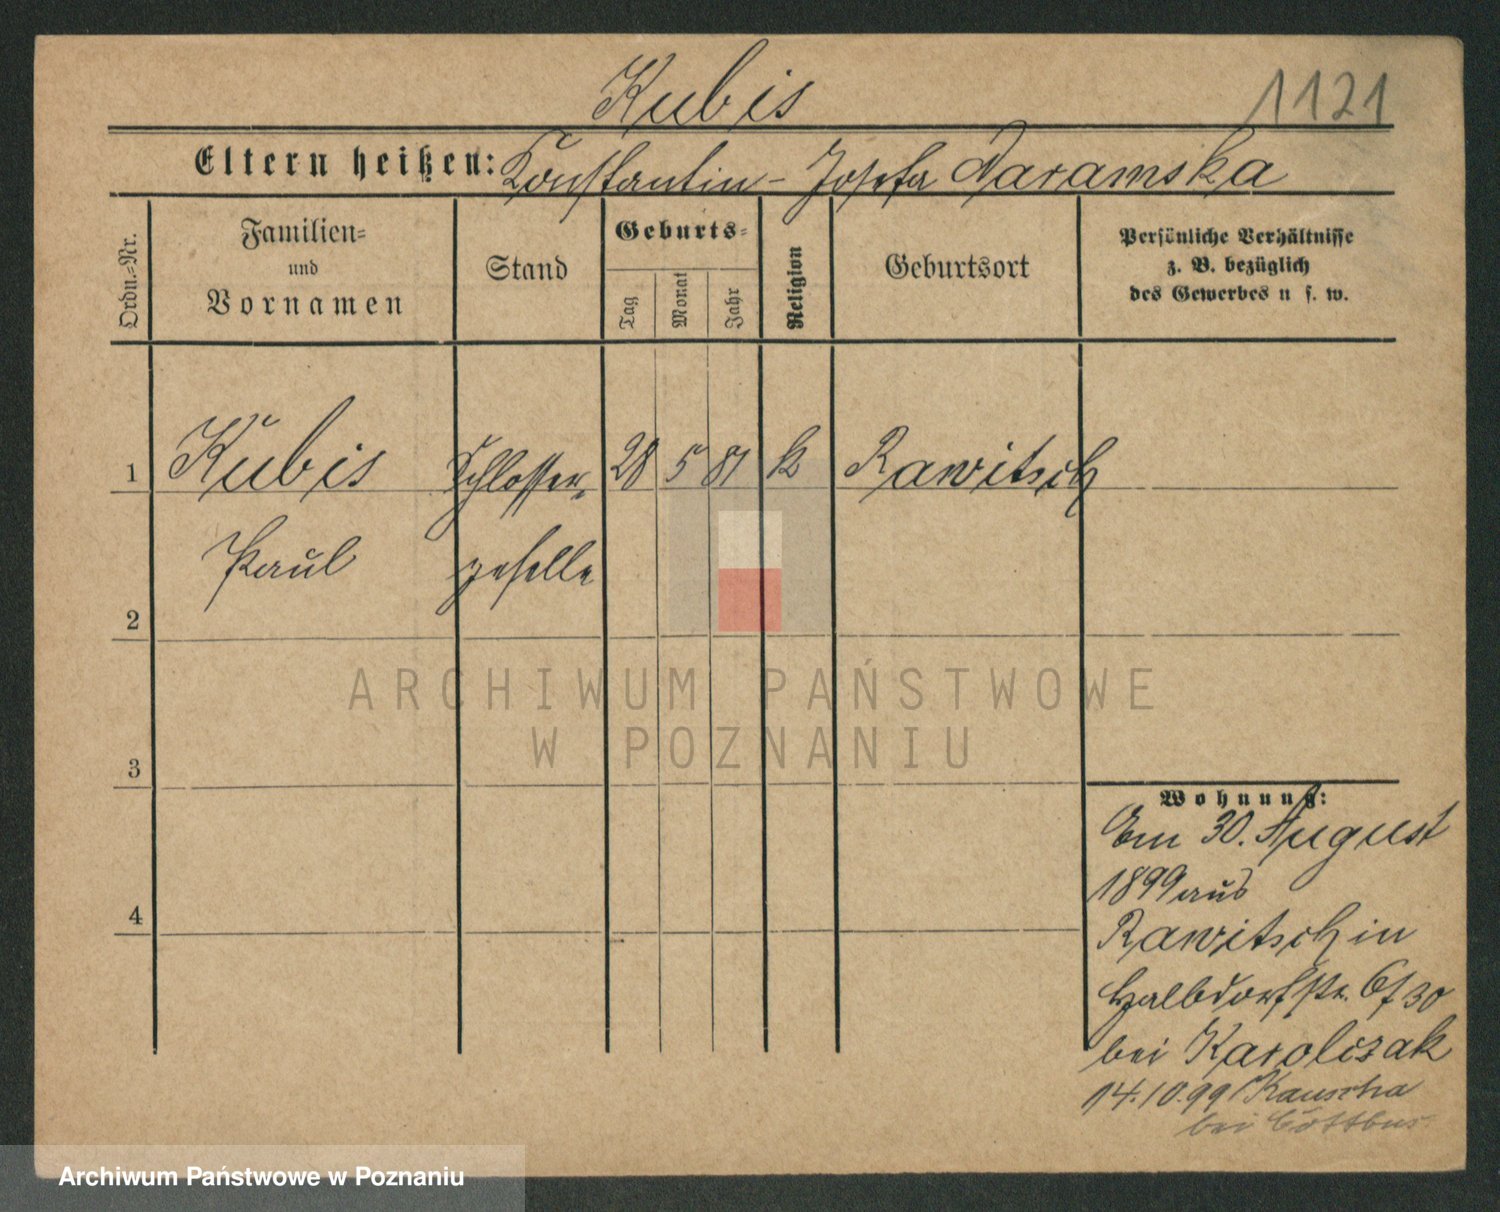 Kubis
1121
Eltern heißen: Konstantin - Josefa
Ordn.-Nr.
Familien-
und
Vornamen
Stand
Geburts-
Tag
Monat
Jahr
Religion
Geburtsort
Persönliche Verhältnisse
z. B. bezüglich
des Gewerbes u s. w.
1 Kubis Schlosser- 28 5 81 k Rawitsch
Paul geselle
2
3
4
ARCHIWUM PAŃSTWOWE
W POZNANIU
Wohnung:
Am 30. August
1899 aus
Rawitsch in
Halbdorfstr. 6/30
bei Karolczak
14.10.99 Kauscha
bei Cottbus.
Archiwum Państwowe w Poznaniu